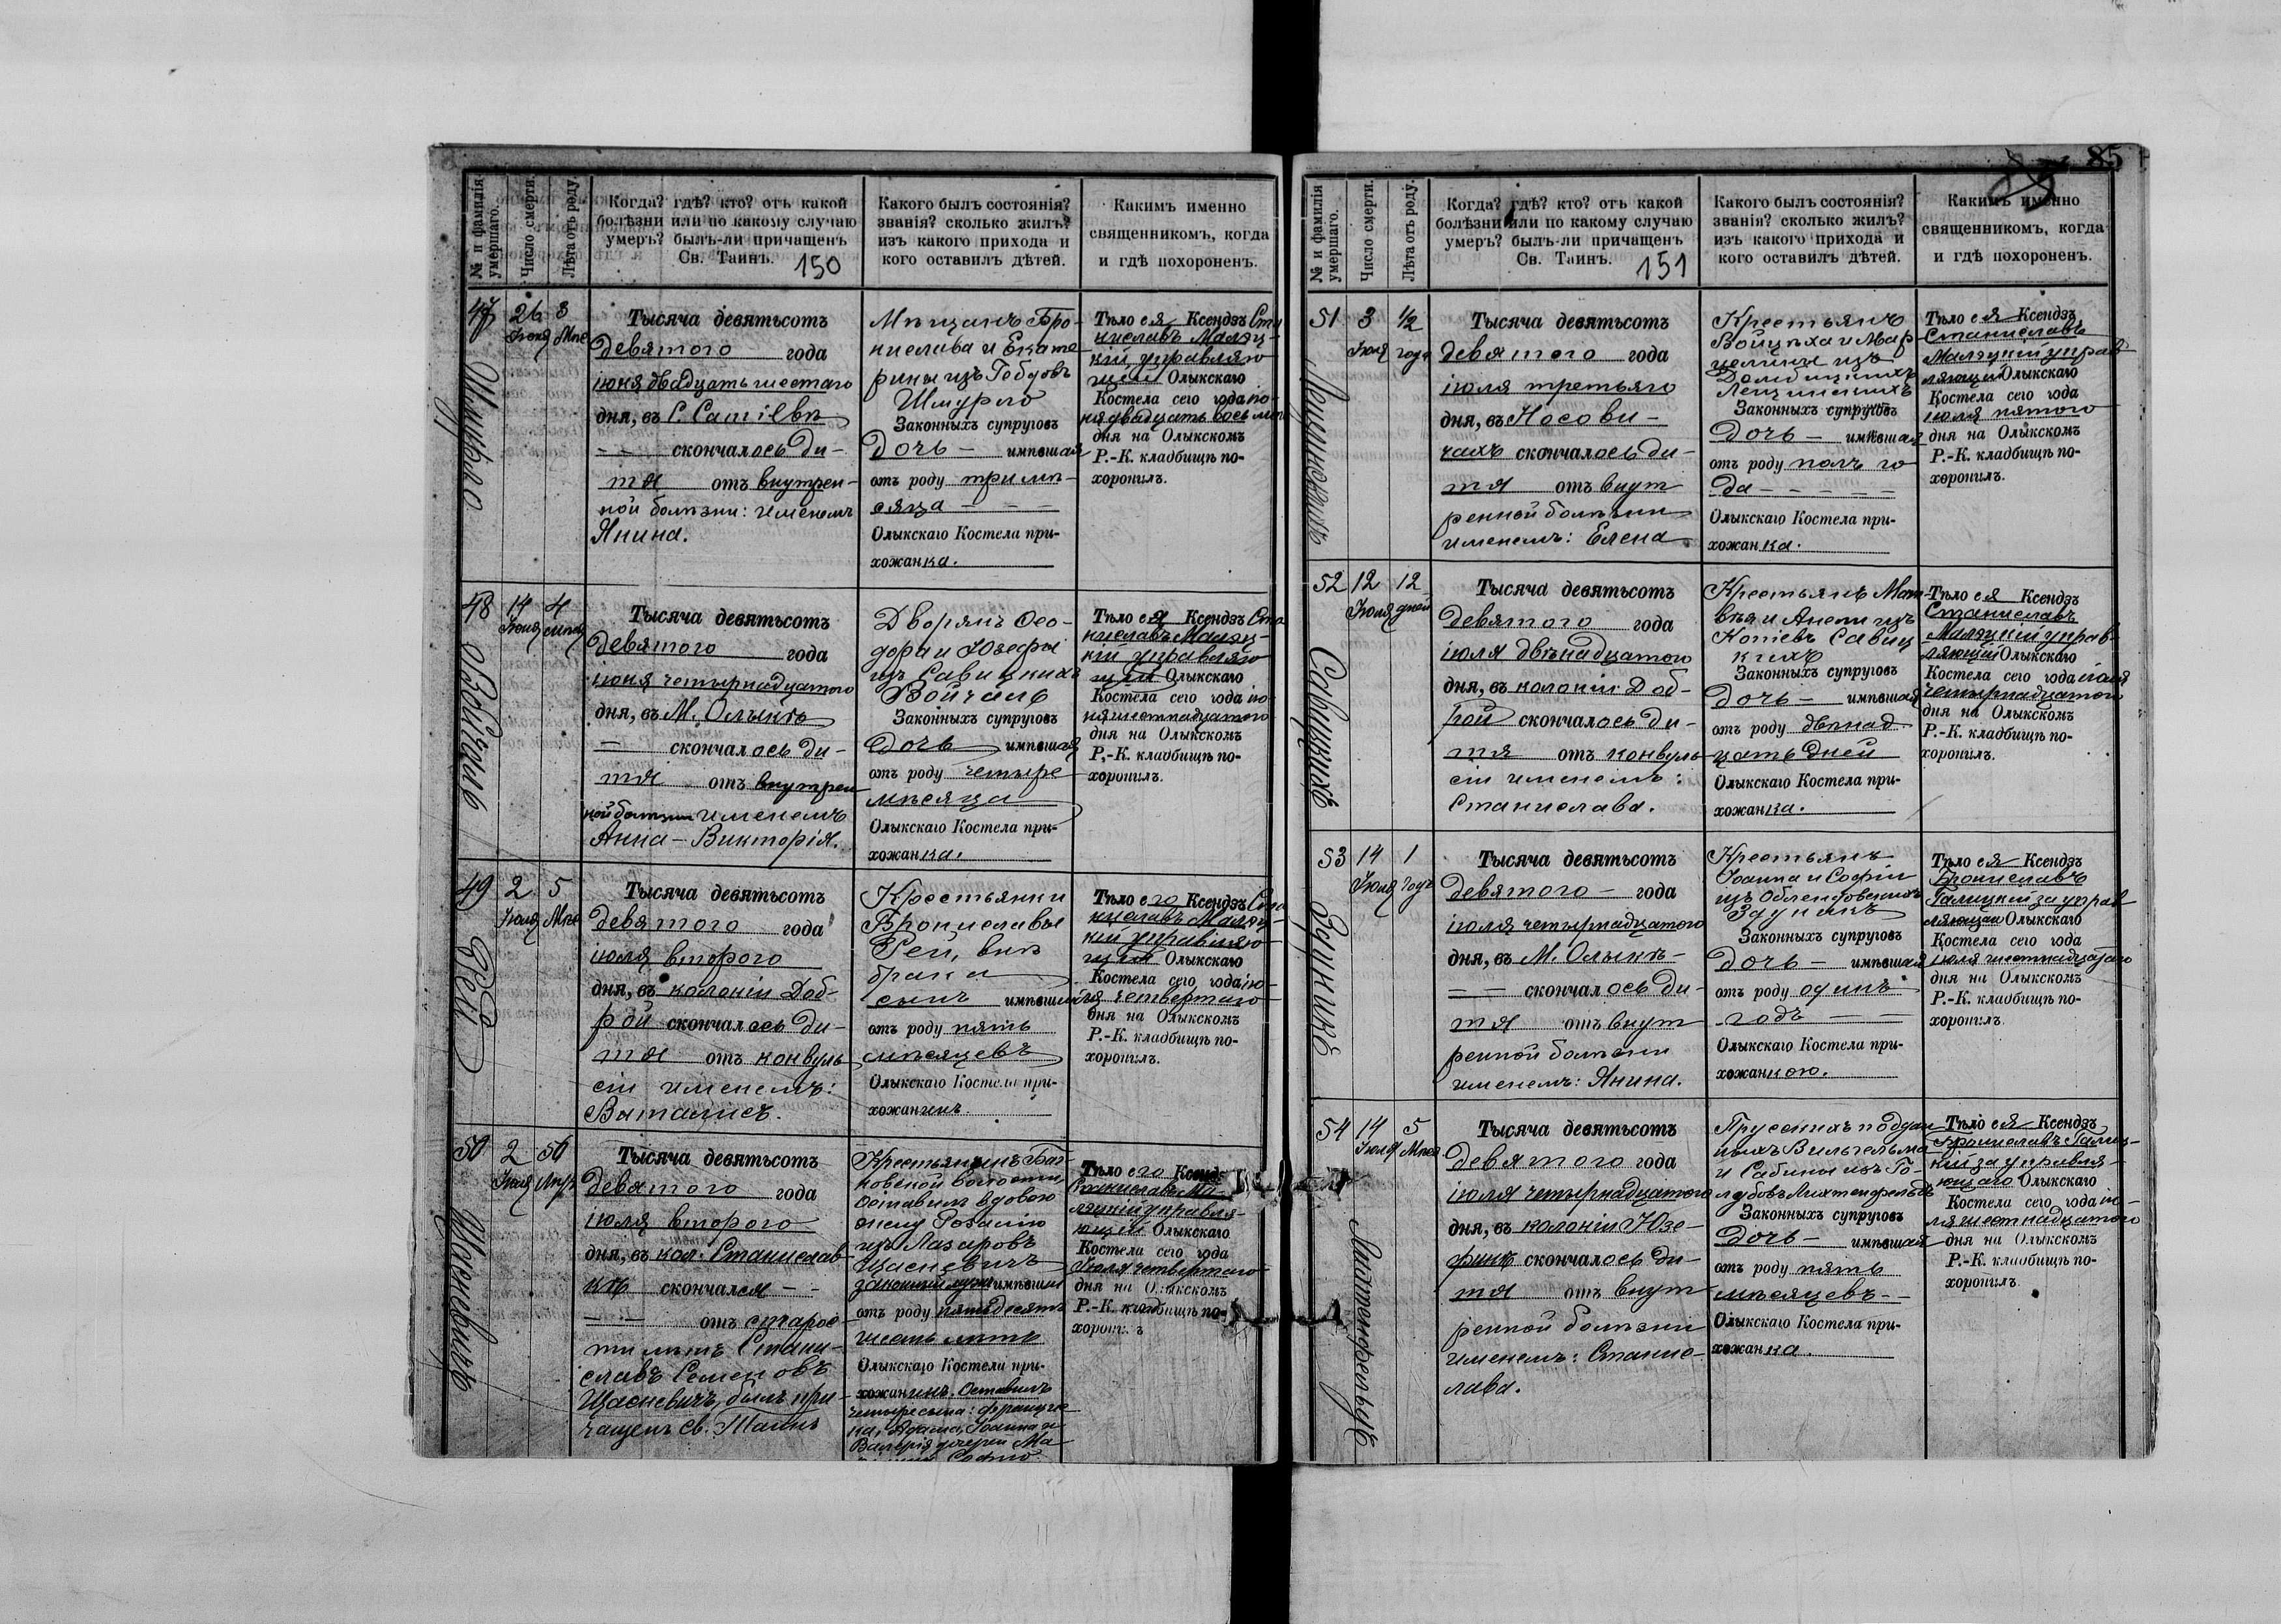 № и фамилія умершаго.
Число смерти.
Лѣта отъ роду.
Когда? гдѣ? кто? отъ какой
болѣзни или по какому случаю
умеръ? былъ-ли причащенъ
Св. Таинъ. 150
Какого былъ состоянія?
званія? сколько жилъ?
изъ какого прихода и
кого оставилъ дѣтей.
Какимъ именно
священникомъ, когда
и гдѣ похороненъ.
47
Шмурло
26 Іюня
3 Мца
Тысяча девятьсотъ
девятого года
іюня двадцать шестаго
дня, въ С.
— — скончалось ди-
тя отъ внутрен-
ной болѣзни: именемъ
Янина.
Мѣщанъ Бро-
нислава и Екате
рины изъ
Шмурло
Законныхъ супруговъ
дочь — имѣвшая
отъ роду три мѣ-
сяца — — —
Олыкскаго Костела при-
хожанка.
Тѣло ея Ксендзъ Ста
ниславъ Маляц-
кій управляю
щій Олыкскаго
Костела сего года ію-
ня двадцать восьмаго
дня на Олыкскомъ
Р.-К. кладбищѣ по-
хоронилъ.
48
Войчаль
14 Іюня
4 Мца
Тысяча девятьсотъ
девятого года
іюня четырнадцатого
дня, въ М. Олыкѣ
— скончалось ди-
тя отъ внутрен
ной болѣзни именемъ
Анна-Викторія.
Дворянъ Ѳео-
дора и Юзефы
изъ Савицкихъ
Войчаль
Законныхъ супруговъ
дочь имѣвшая
отъ роду четыре
мѣсяца
Олыкскаго Костела при-
хожанка.
Тѣло ея Ксендзъ Ста
ниславъ Маляц-
кій управляю
щій Олыкскаго
Костела сего года ію-
ня шестнадцатого
дня на Олыкскомъ
Р.-К. кладбищѣ по-
хоронилъ.
49
Рей
2 Іюля
5 Мца
Тысяча девятьсотъ
девятого года
іюля второго
дня, въ колоніи Доб-
рой скончалось ди-
тя отъ конвуль
сіи именемъ:
Виталисъ.
Крестьянки
Брониславы
Рей, внѣ
брака
сынъ имѣвшій
отъ роду пять
мѣсяцевъ
Олыкскаго Костела при-
хожанинъ.
Тѣло его Ксендзъ Ста
ниславъ Маляц-
кій управляю-
щій Олыкскаго
Костела сего года ію-
ля четвертаго
дня на Олыкскомъ
Р.-К. кладбищѣ по-
хоронилъ.
50
Щасневичъ
2 Іюля
56
Тысяча девятьсотъ
девятого года
іюля второго
дня, въ кол. Станислав-
кѣ скончался — —
— — отъ старос-
ти лѣтъ Стани-
славъ Семеновъ
Щасневичъ, былъ при-
чащенъ Св. Таинъ
Крестьянинъ
волости,
оставилъ вдовою
жену Розалію
изъ Лазаровъ
Щасневичъ
законный мужъ имѣвшій
отъ роду пятьдесятъ
шесть лѣтъ
Олыкскаго Костела при-
хожанинъ. Оставилъ
четыре сына: Францишка
на, Адама, Іоанна и
Валерія дочерей Ма
Софію
Тѣло его Ксендзъ
Станиславъ Ма-
ляцкій управля-
ющій Олыкскаго
Костела сего года
Іюля четвертаго
дня на Олыкскомъ
Р.-К. кладбищѣ по-
хоронилъ
85
№ и фамилія умершаго.
Число смерти.
Лѣта отъ роду.
Когда? гдѣ? кто? отъ какой
болѣзни или по какому случаю
умеръ? былъ-ли причащенъ
Св. Таинъ. 151
Какого былъ состоянія?
званія? сколько жилъ?
изъ какого прихода и
кого оставилъ дѣтей.
Какимъ именно
священникомъ, когда
и гдѣ похороненъ.
51
3 Іюля
1/2 года
Тысяча девятьсотъ
девятого года
іюля третьяго
дня, въ Носови-
чахъ скончалось ди-
тя отъ внут
ренной болѣзни
именемъ: Елена
Крестьянъ
Войцѣха и Мар
целины изъ
Домбицкихъ
Законныхъ супруговъ
дочь — имѣвшая
отъ роду полъ го
да — — — — —
Олыкскаго Костела при-
хожанка.
Тѣло ея Ксендзъ
Станиславъ
Маляцкій управ
ляющій Олыкскаго
Костела сего года
іюля пятого
дня на Олыкскомъ
Р.-К. кладбищѣ по-
хоронилъ.
52
Савицкихъ
12 Іюля
12 дней
Тысяча девятьсотъ
девятого года
іюля двѣнадцатого
дня, въ колоніи Доб-
рой скончалось ди-
тя отъ конвуль
сіи именемъ:
Станислава.
Крестьянъ Мат
вѣя и Анели изъ
Савиц
кихъ
Законныхъ супруговъ
дочь — имѣвшая
отъ роду двѣнад
цать дней
Олыкскаго Костела при-
хожанка.
Тѣло ея Ксендзъ
Станиславъ
Маляцкій управ
ляющій Олыкскаго
Костела сего года іюля
четырнадцатого
дня на Олыкскомъ
Р.-К. кладбищѣ по-
хоронилъ.
53
Здуникъ
14 Іюля
1 годъ
Тысяча девятьсотъ
девятого — года
іюля четырнадцатого
дня, въ М. Олыкѣ —
— — скончалось ди-
тя отъ внут
ренной болѣзни
именемъ: Янина.
Крестьянъ
Іоанна и Софіи
изъ
Здуникъ
Законныхъ супруговъ
дочь — имѣвшая
отъ роду одинъ
годъ — —
Олыкскаго Костела при-
хожанкою.
Тѣло ея Ксендзъ
Брониславъ
Галицкій за управ
ляющаго Олыкскаго
Костела сего года
іюля шестнадцатаго
дня на Олыкскомъ
Р.-К. кладбищѣ по-
хоронилъ.
54
Лихтенфельдъ
14 Іюля
5 Мцев
Тысяча девятьсотъ
девятого года
іюля четырнадцатого
дня, въ колоніи Юзе-
финѣ скончалось ди-
тя отъ внут
ренной болѣзни
именемъ: Станис-
лава.
Прусскихъ поддан
ныхъ Вильгельма
и Сабины изъ Го-
лубовъ Лихтенфельдъ
Законныхъ супруговъ
дочь — имѣвшая
отъ роду пять
мѣсяцевъ —
Олыкскаго Костела при-
хожанка.
Тѣло ея Ксендзъ
Брониславъ Галиц-
кій за управля-
ющаго Олыкскаго
Костела сего года ію-
ля шестнадцатого
дня на Олыкскомъ
Р.-К. кладбищѣ по-
хоронилъ.